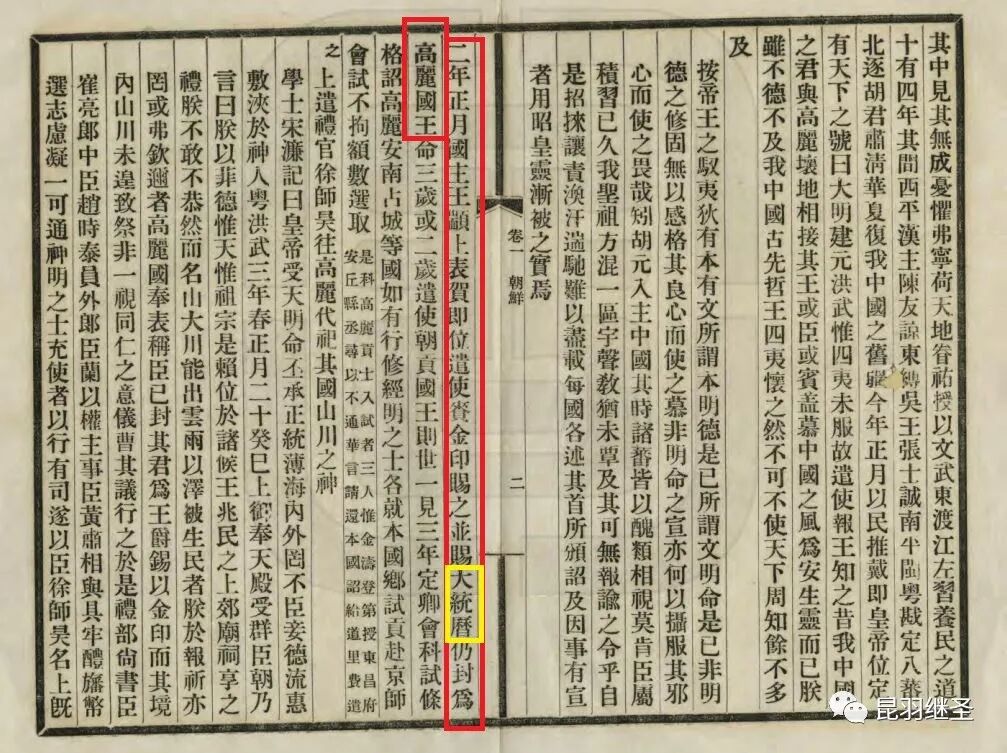 其中見其無成憂懼弗寧荷天地眷祐授以文武東渡江左習養民之道
十有四年其間西平漢主陳友諒東縛吳王張士誠南平閩粵戡定八蕃
北逐胡君肅清華夏復我中國之舊疆今年正月以民推戴即皇帝位定
有天下之號曰大明建元洪武惟四夷未服故遣使報王知之昔我中國
之君與高麗壤地相接其王或臣或賓盖慕中國之風爲安生靈而已朕
雖不德不及我中國古先哲王四夷懷之然不可不使天下周知餘不多
及
按帝王之馭夷狄有本有文所謂本明德是已所謂文明命是已非明
德之修固無以感格其良心而使之慕非明命之宣亦何以攝服其邪
心而使之畏哉矧胡元入主中國其時諸蕃皆以醜類相視莫肯臣屬
積習已久我聖祖方混一區宇聲教猶未覃及其可無報諭之令乎自
是招徠讓責渙汗遄馳難以盡載每國各述其首所頒詔及因事有宣
者用昭皇靈漸被之實焉
卷一 朝鮮
二
二年正月國主王顓上表賀即位遣使賫金印賜之並賜大統曆仍封爲
高麗國王命三歲或二歲遣使朝貢國王則世一見三年定鄉會科試條
格詔高麗安南占城等國如有行修經明之士各就本國鄉試貢赴京師
會試不拘額數選取
是科高麗貢士入試者三人惟金濤登第授東昌府
安丘縣丞尋以不通華言請還本國詔給道里費遣
之
上遣禮官徐師昊往高麗代祀其國山川之神
學士宋濂記曰皇帝受天明命丕承正統薄海內外罔不臣妾德流惠
敷浹於神人粵洪武三年春正月二十癸巳上御奉天殿受群臣朝乃
言曰朕以非德惟天惟祖宗是賴位於諸候王兆民之上郊廟祠享之
禮朕不敢不恭然而名山大川能出雲雨以澤被生民者朕於報祈亦
罔或弗欽邇者高麗國奉表稱臣已封其君爲王爵錫以金印而其境
內山川未遑致祭非一視同仁之意儀曹其議行之於是禮部尚書臣
崔亮郎中臣趙時泰員外郎臣蘭以權主事臣黃肅相與具牢醴旛幣
選志慮凝一可通神明之士充使者以行有司遂以臣徐師昊名上既
昆羽继圣